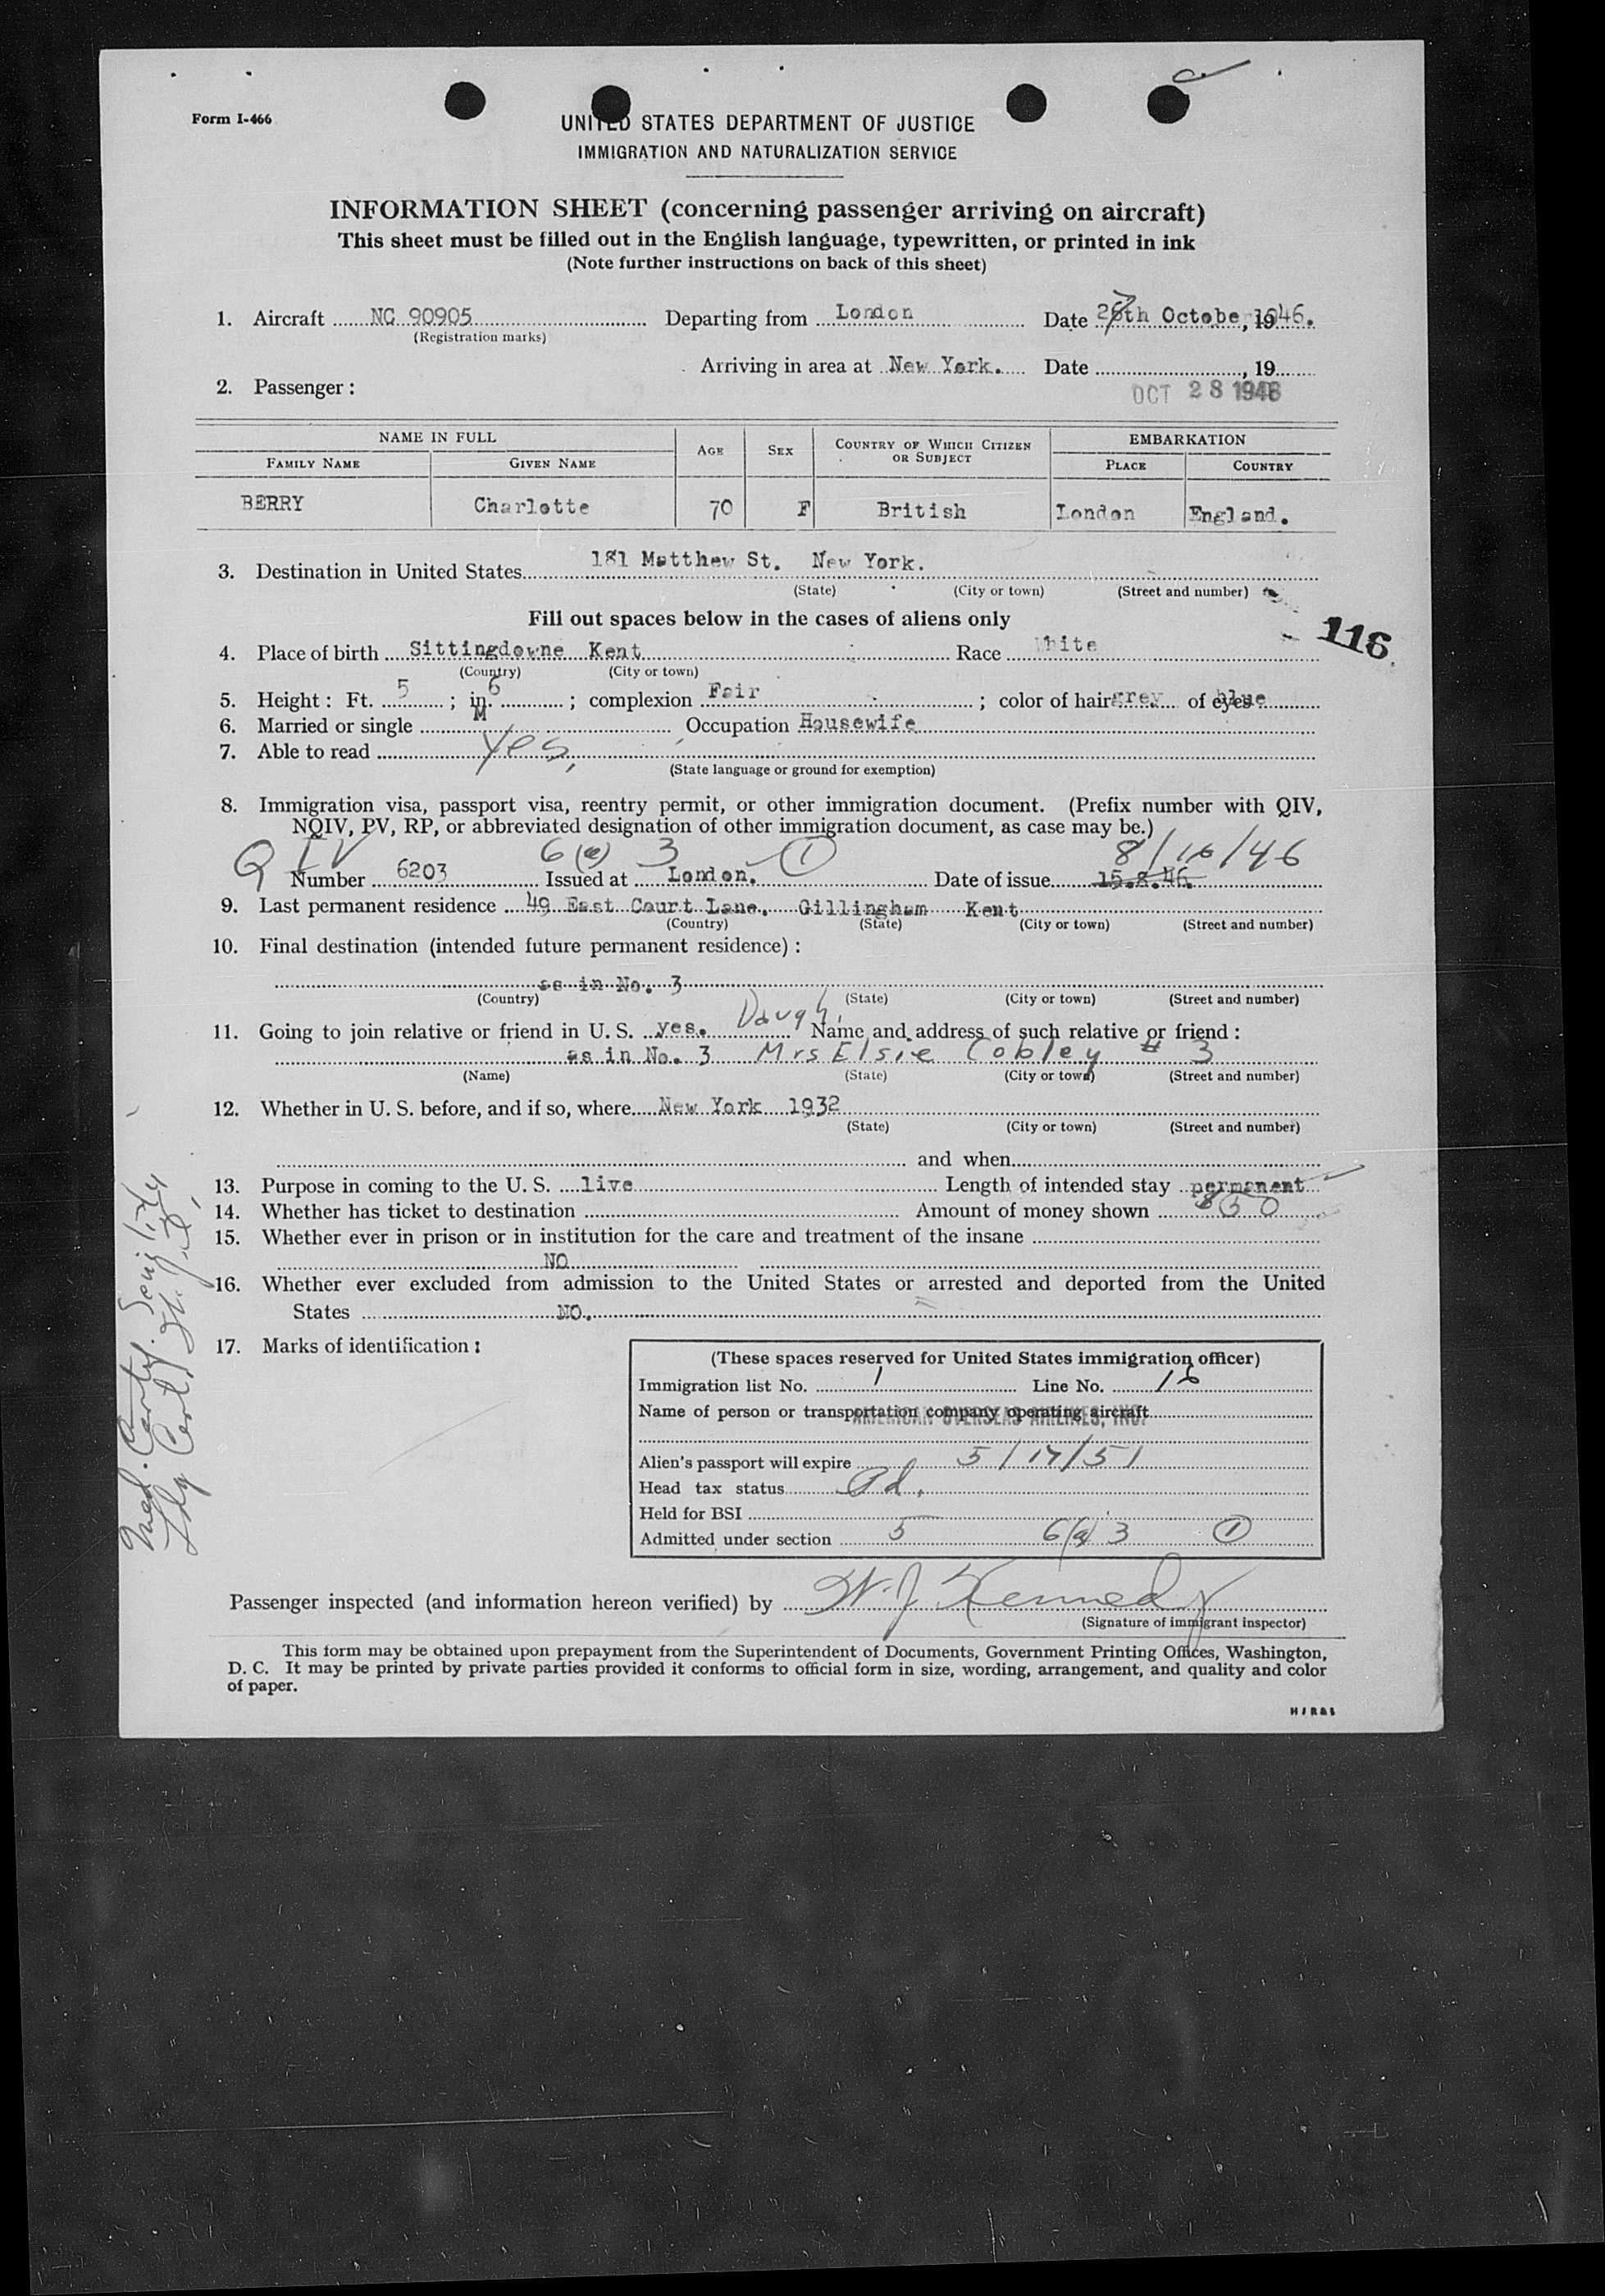 Form I-466
UNITED STATES DEPARTMENT OF JUSTICE
IMMIGRATION AND NATURALIZATION SERVICE
INFORMATION SHEET (concerning passenger arriving on aircraft)
This sheet must be filled out in the English language, typewritten, or printed in ink
(Note further instructions on back of this sheet)
1. Aircraft NC 90905 Departing from London Date 27th October, 1946.
(Registration marks)
Arriving in area at New York. Date , 19
2. Passenger: OCT 28 1946
NAME IN FULL AGE SEX COUNTRY OF WHICH CITIZEN OR SUBJECT EMBARKATION
FAMILY NAME GIVEN NAME PLACE COUNTRY
BERRY Charlotte 70 F British London England.
3. Destination in United States 181 Matthew St. New York.
(State) (City or town) (Street and number)
Fill out spaces below in the cases of aliens only
116
4. Place of birth Sittingdowne Kent Race White
(Country) (City or town)
5. Height: Ft. 5; in. 6; complexion Fair; color of hair grey of eyes blue
6. Married or single M Occupation Housewife
7. Able to read Yes,
(State language or ground for exemption)
8. Immigration visa, passport visa, reentry permit, or other immigration document. (Prefix number with QIV,
NQIV, PV, RP, or abbreviated designation of other immigration document, as case may be.)
QIV 6(a) 3 (1) 8/16/46
Number 6203 Issued at London. Date of issue 15.8.46.
9. Last permanent residence 49 East Court Lane, Gillingham Kent
(Country) (State) (City or town) (Street and number)
10. Final destination (intended future permanent residence):
as in No. 3
(Country) (State) (City or town) (Street and number)
11. Going to join relative or friend in U. S. yes. Daugh. Name and address of such relative or friend:
as in No. 3 Mrs Elsie Cobley # 3
(Name) (State) (City or town) (Street and number)
12. Whether in U. S. before, and if so, where New York 1932
(State) (City or town) (Street and number)
and when
13. Purpose in coming to the U. S. live Length of intended stay permanent
14. Whether has ticket to destination Amount of money shown
15. Whether ever in prison or in institution for the care and treatment of the insane
NO
16. Whether ever excluded from admission to the United States or arrested and deported from the United
States NO.
17. Marks of identification:
Med. Certif. Senility
(These spaces reserved for United States immigration officer)
Immigration list No. 1 Line No. 16
Name of person or transportation company operating aircraft
AMERICAN OVERSEAS AIRLINES, INC.
Alien's passport will expire 5/17/51
Head tax status Pd.
Held for BSI
Admitted under section 5 6(a) 3 (1)
Passenger inspected (and information hereon verified) by W. J. Kennedy
(Signature of immigrant inspector)
This form may be obtained upon prepayment from the Superintendent of Documents, Government Printing Offices, Washington,
D. C. It may be printed by private parties provided it conforms to official form in size, wording, arrangement, and quality and color
of paper.